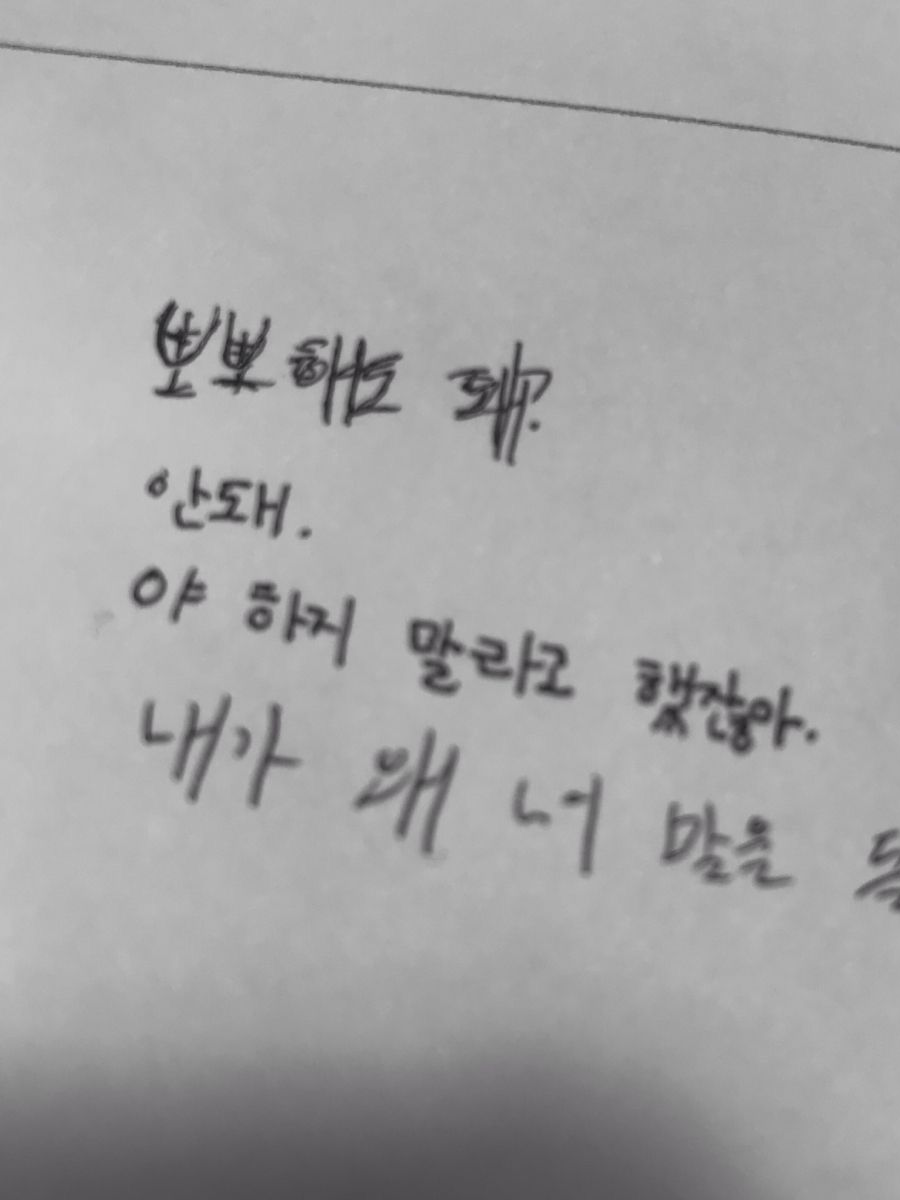 뽀뽀해도 돼?
안돼.
야 하지 말라고 했잖아.
내가 왜 너 말을